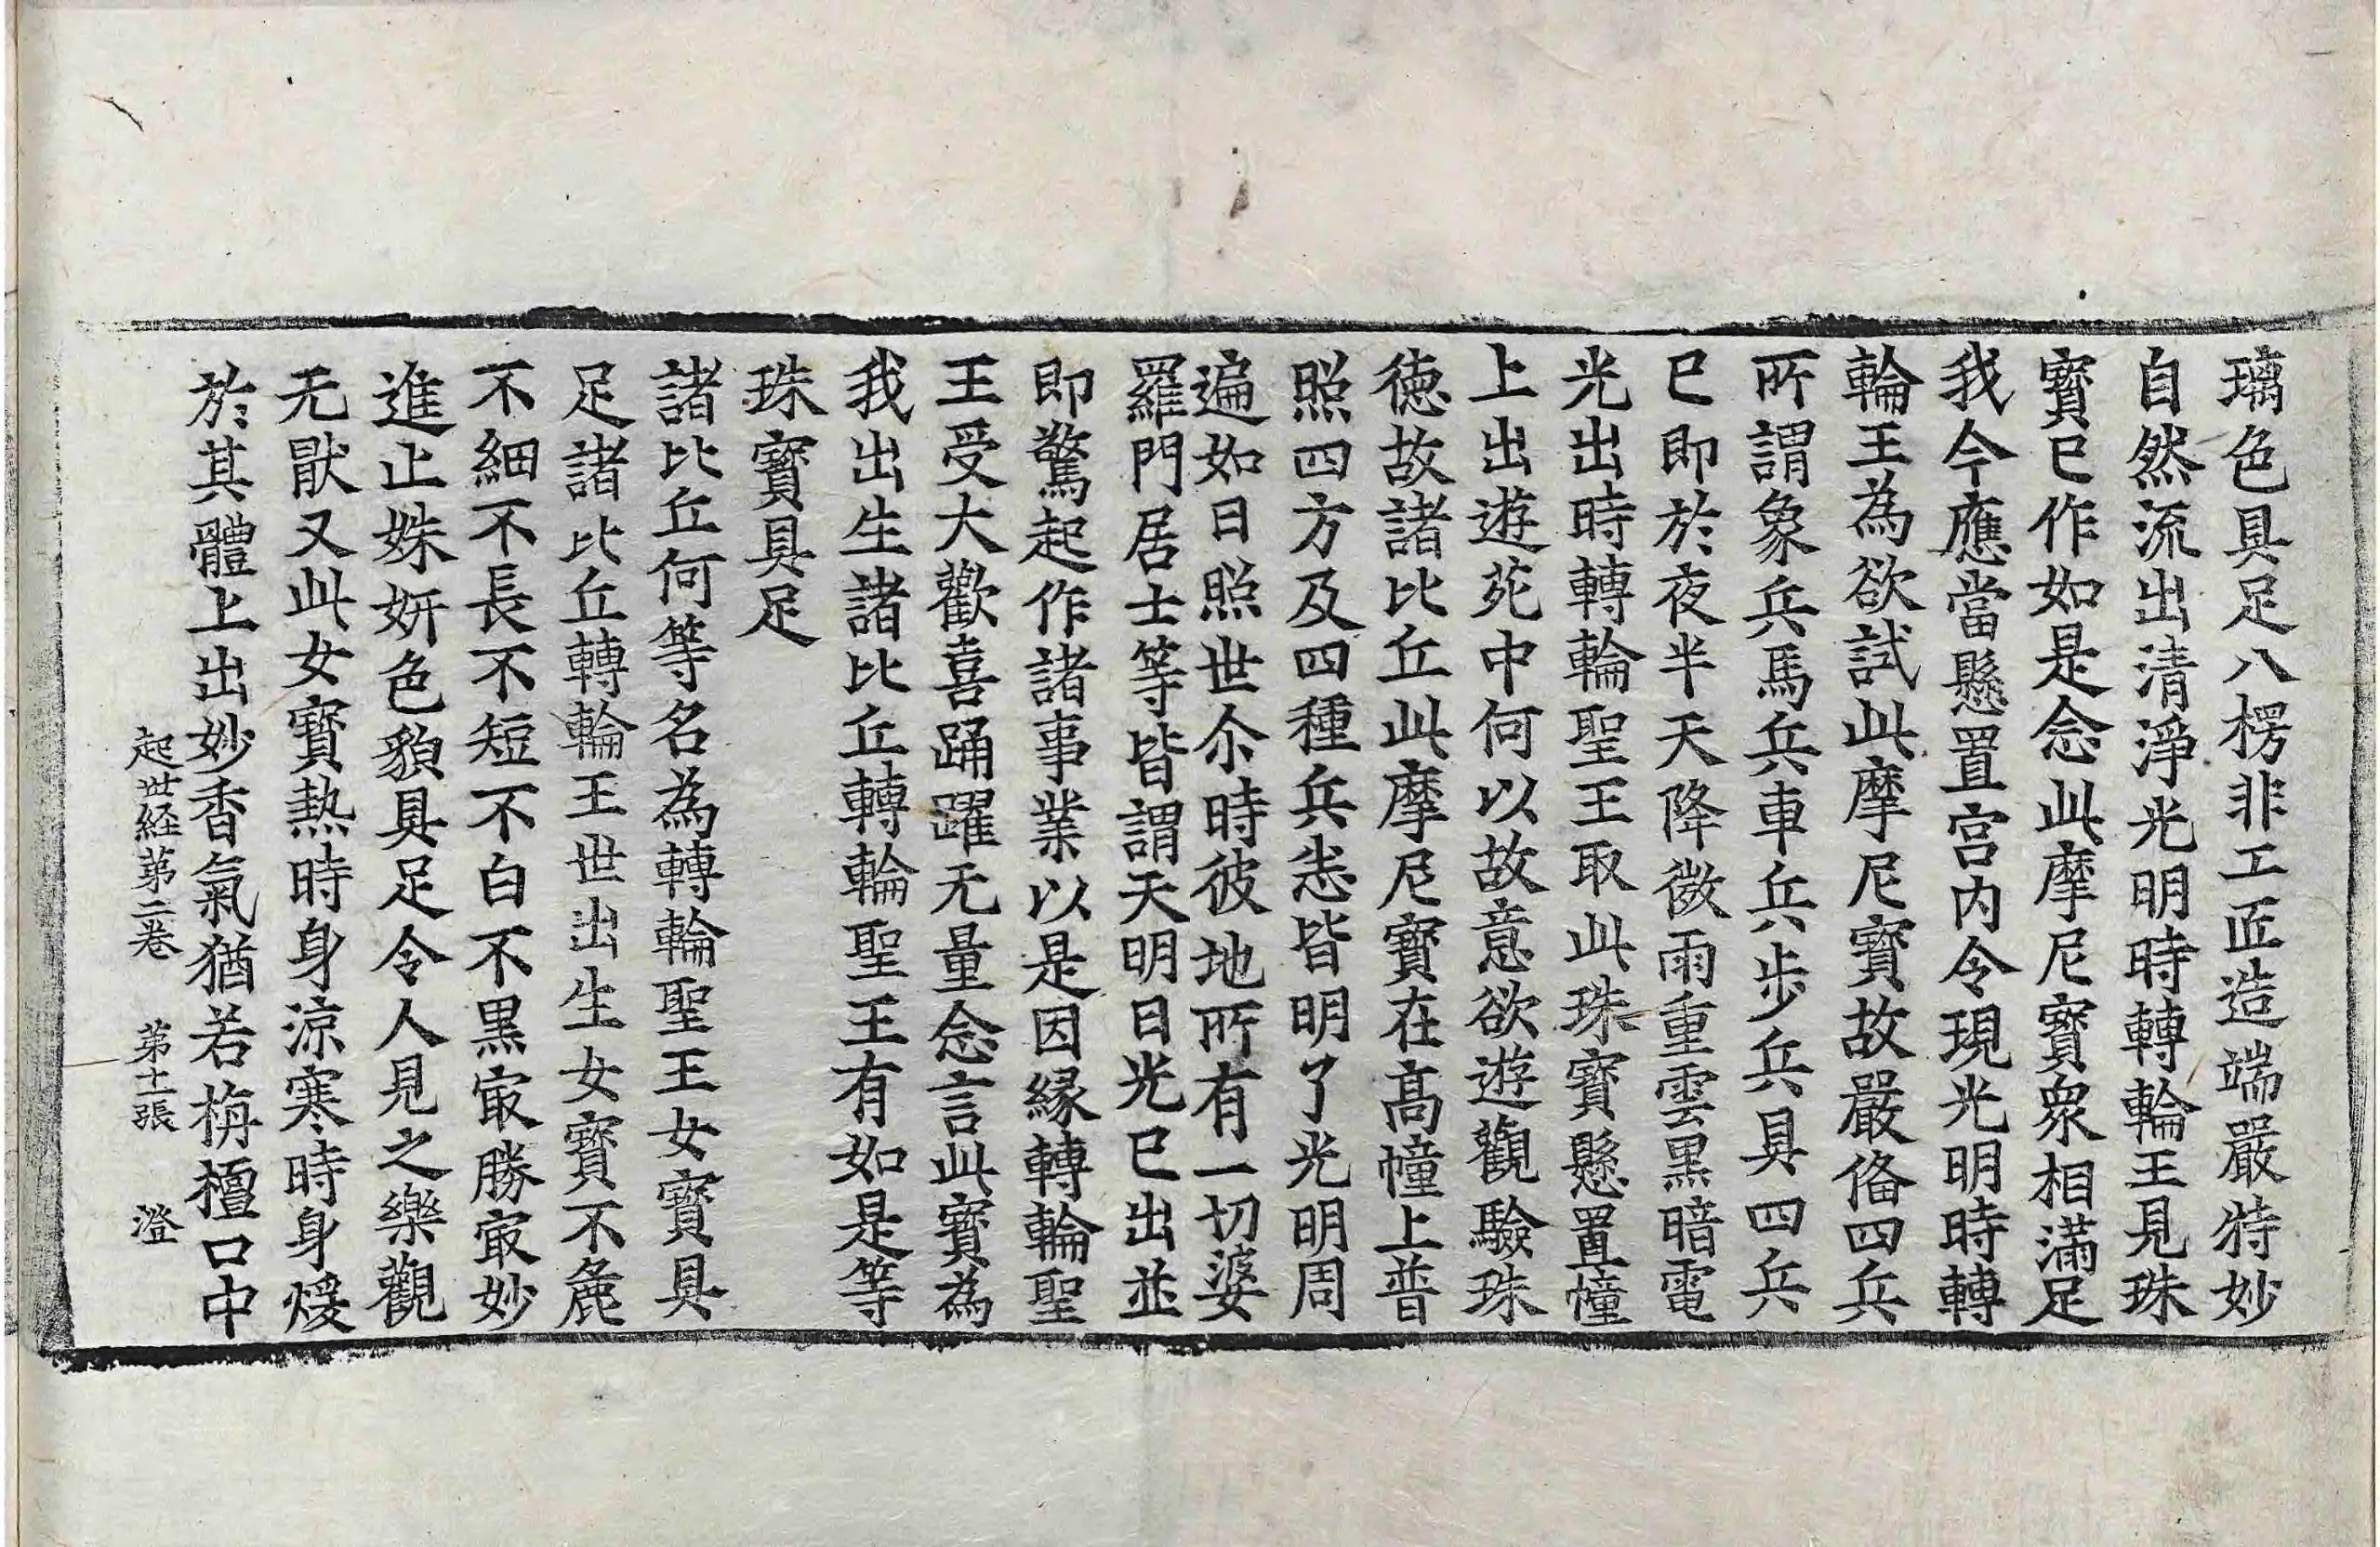 璃色具足八楞非工匠造端嚴特妙
自然流出清淨光明時轉輪王見珠
寳已作如是念此摩尼寳衆相滿足
我今應當懸置宫内令現光明時轉
輪王為欲試此摩尼寳故嚴俻四兵
所謂象兵馬兵車兵步兵具四兵
已即於夜半天降微雨重雲黒暗電
光出時轉輪聖王取此珠寳懸置幢
上出遊苑中何以故意欲遊觀驗珠
徳故諸比丘此摩尼寳在髙幢上普
照四方及四種兵悉皆明了光明周
遍如日照世尒時彼地所有一切婆
羅門居士等皆謂天明日光已出並
即驚起作諸事業以是因縁轉輪聖
王受大歡喜踊躍无量念言此寳為
我出生諸比丘轉輪聖王有如是等
珠寳具足
諸比丘何等名為轉輪聖王女寳具
足諸比丘轉輪王世出生女寳不麁
不細不長不短不白不黒冣勝冣妙
進止姝妍色貌具足令人見之樂觀
无猒又此女寳熱時身涼寒時身煖
於其體上出妙香氣猶若栴檀口中
起世経第二卷 第十二張 澄